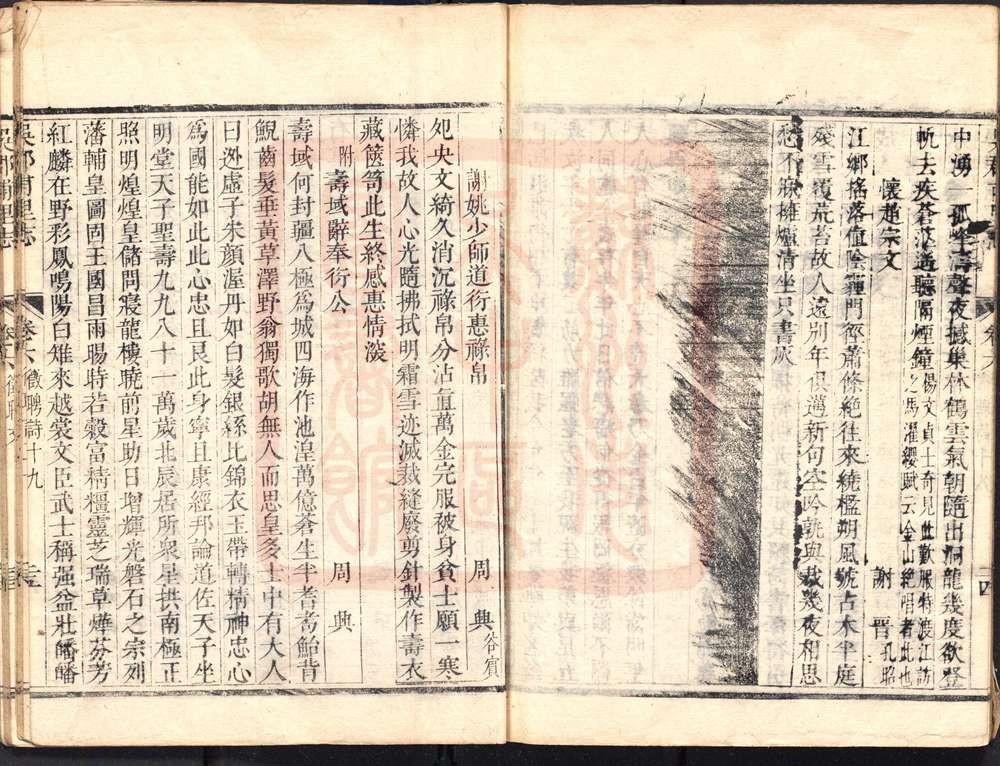 中湧一孤峰濤聲夜撼巢林鶴雲氣朝隨出洞龍幾度欲登
帆去疾蒼茫遙聽隔煙鐘楊文貞士奇見此歎服特渡江訪之馬濯纓賦云金山絶唱者此也
懷趙宗文 謝晋孔昭
江鄉搖落值陰霾門徑蕭條絶往來繞檻朔風號古木半庭
殘雪覆荒苔故人遠別年俱邁新句空吟孰與裁幾夜相思
愁不寐擁爐清坐只書灰
謝姚少師道衍惠祿帛 周典谷賓
処央文綺久消沉祿帛分沾值萬金完服被身貧士願一寒
憐我故人心光隨拂拭明霜雪迹滅裁縫廢剪針製作壽衣
藏篋笥此生終感惠情深
附壽域辭奉衍公 周典
壽域何封疆八極為城四海作池湟萬億蒼生半耆耇鮐背
鯢齒髮垂黃草澤野翁獨歌胡無人而思皇多士中有大人
曰逃虛子朱顏渥丹如白髮銀絲比錦衣玉帶轉精神忠心
為國能如此此心忠且艮此身寧且康經邦論道佐天子坐
明堂天子聖壽九九八十一萬歲北辰居所衆星拱南極正
照明煌煌皇儲問寢龍樓曉前星助日增輝光磐石之宗列
藩輔皇圖固王國昌雨暘時若穀富精糧靈芝瑞草燁芬芳
紅麟在野彩鳳鳴陽白雉來越裳文臣武士稱强益壯皤皤
吳郡甫里志 卷六 徵聘詩十九